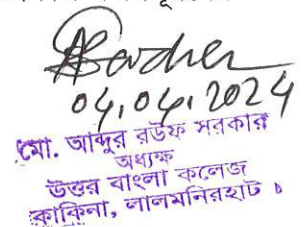 Sarder
04.04.2024
মো. আব্দুর রউফ সরকার
অধ্যক্ষ
উত্তর বাংলা কলেজ
কাকিনা, লালমনিরহাট।